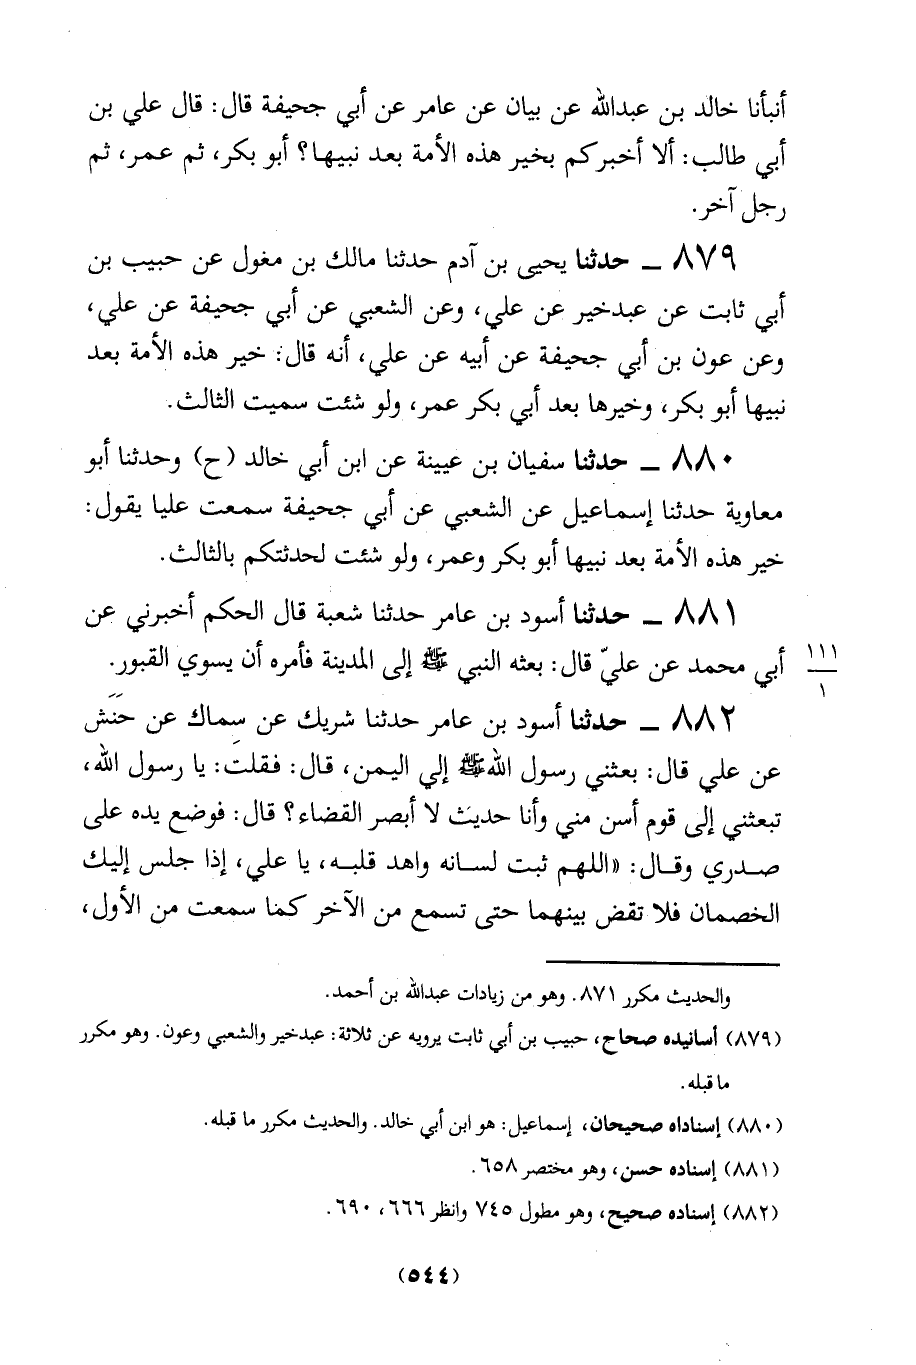 أنبأنا خالد بن عبدالله عن بيان عن عامر عن أبي جحيفة قال: قال علي بن
أبي طالب: ألا أخبركم بخير هذه الأمة بعد نبيها؟ أبو بكر، ثم عمر، ثم
رجل آخر.
٨٧٩ ــ حدثنا يحيى بن آدم حدثنا مالك بن مغول عن حبيب بن
أبي ثابت عن عبدخير عن علي، وعن الشعبي عن أبي جحيفة عن علي،
وعن عون بن أبي جحيفة عن أبيه عن علي، أنه قال: خير هذه الأمة بعد
نبيها أبو بكر، وخيرها بعد أبي بكر عمر، ولو شئت سميت الثالث.
٨٨٠ ــ حدثنا سفيان بن عيينة عن ابن أبي خالد (ح) وحدثنا أبو
معاوية حدثنا إسماعيل عن الشعبي عن أبي جحيفة سمعت عليا يقول:
خير هذه الأمة بعد نبيها أبو بكر وعمر، ولو شئت لحدثتكم بالثالث.
٨٨١ ــ حدثنا أسود بن عامر حدثنا شعبة قال الحكم أخبرني عن
أبي محمد عن عليّ قال: بعثه النبي ﷺ إلى المدينة فأمره أن يسوي القبور.
١١١
١
٨٨٢ ــ حدثنا أسود بن عامر حدثنا شريك عن سماك عن حَنَش
عن علي قال: بعثني رسول الله ﷺ إلي اليمن، قال: فقلت: يا رسول الله،
تبعثني إلى قوم أسن مني وأنا حديث لا أبصر القضاء؟ قال: فوضع يده على
صدري وقال: «اللهم ثبت لسانه واهد قلبه، يا علي، إذا جلس إليك
الخصمان فلا تقض بينهما حتى تسمع من الآخر كما سمعت من الأول،
والحديث مكرر ٨٧١. وهو من زيادات عبدالله بن أحمد.
(٨٧٩) أسانيده صحاح، حبيب بن أبي ثابت يرويه عن ثلاثة: عبدخير والشعبي وعون. وهو مكرر
ما قبله.
(٨٨٠) إسناداه صحيحان، إسماعيل: هو ابن أبي خالد. والحديث مكرر ما قبله.
(٨٨١) إسناده حسن، وهو مختصر ٦٥٨.
(٨٨٢) إسناده صحيح، وهو مطول ٧٤٥ وانظر ٦٦٦، ٦٩٠.
(٥٤٤)